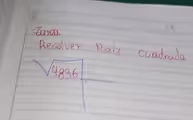 Tarea
Resolver Raiz cuadrada
√4836